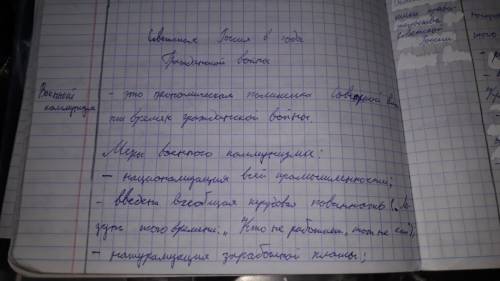 Советская Россия в года
Гражданской войны
Военный
коммунизм
- это экономическая политика Советской вла
ти времян гражданской войны.
Меры военного коммунизма:
- национализация всей промышленности;
- введена всеобщая трудовая повинность („ Ло
зунг того времени: „ Кто не работает, тот не ест");
- натурализация заработной платы;
России
того